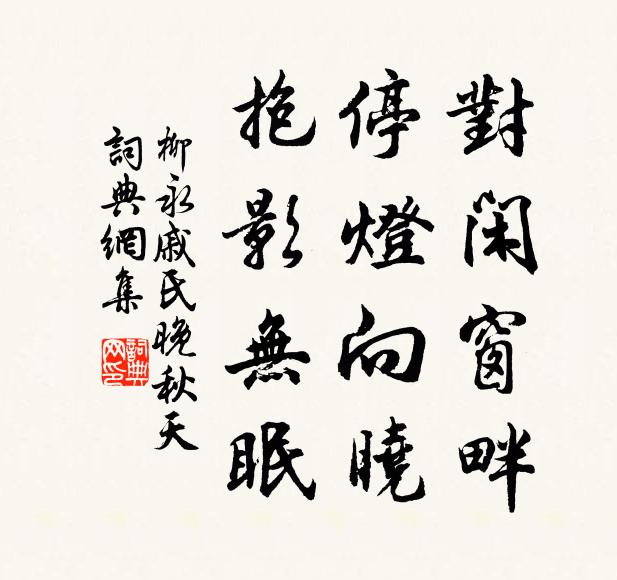 對閑窗畔
停燈向曉
抱影無眠
柳永戚氏晚秋天
詞典網集
詞典网印